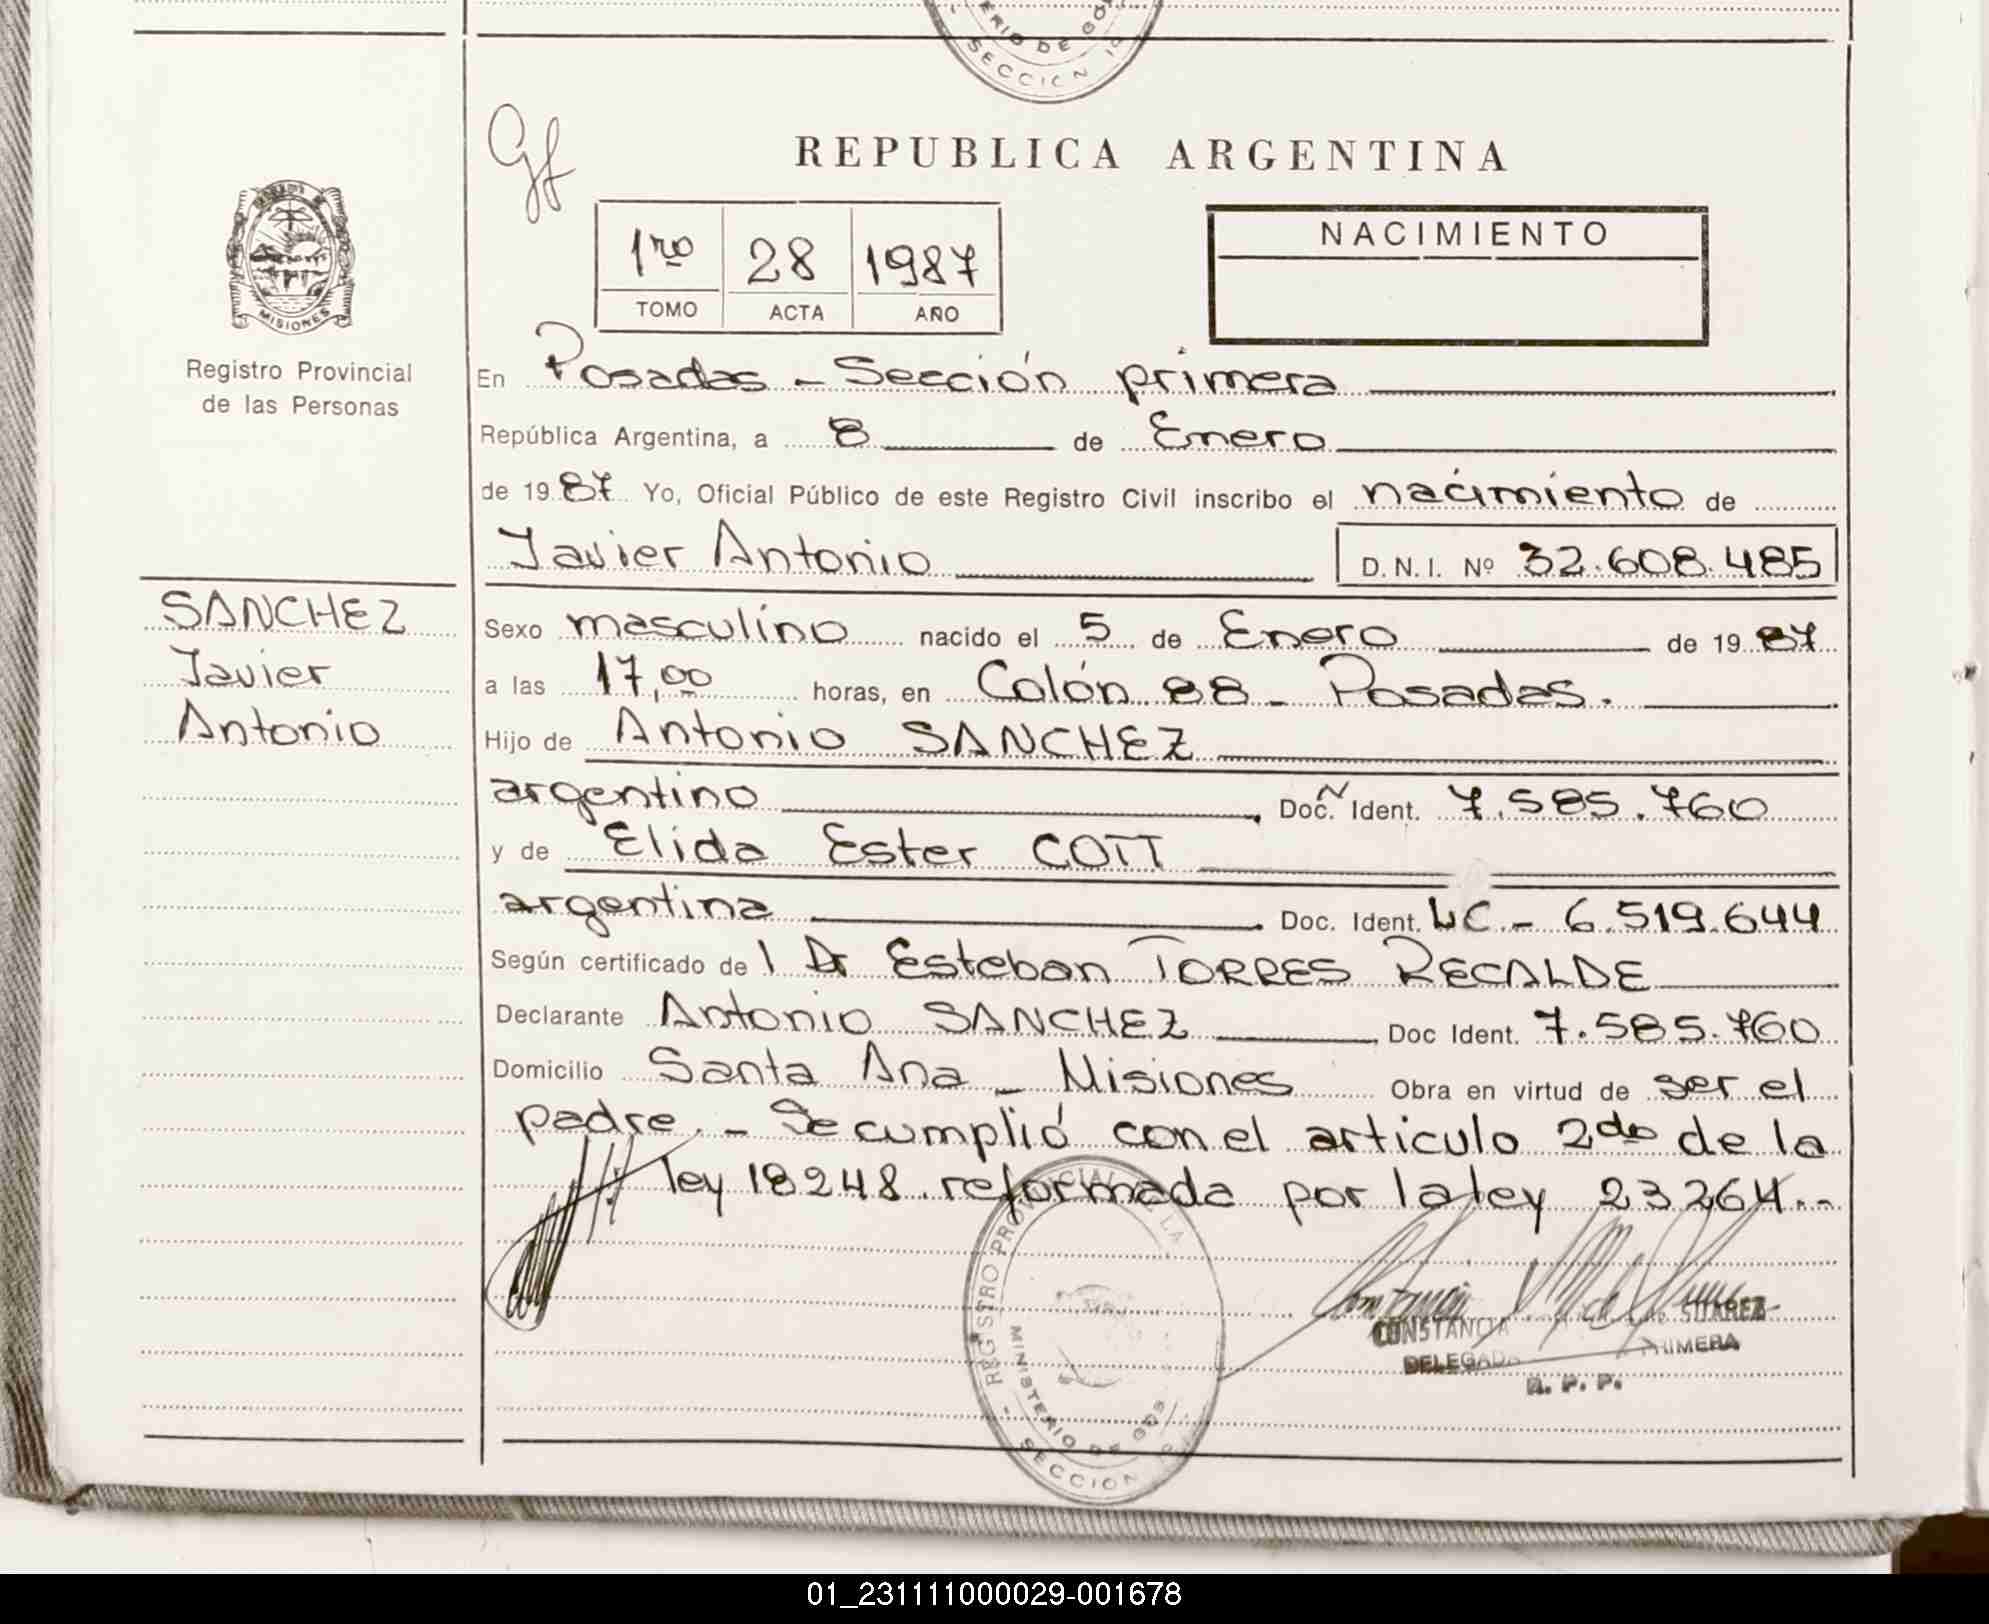 ERIO DE GO
SECCION 1
Gf
REPUBLICA ARGENTINA
1ro 28 1987
TOMO ACTA AÑO
NACIMIENTO
MISIONES
Registro Provincial
de las Personas
En Posadas - Sección primera
República Argentina, a 8 de Enero
de 1987 Yo, Oficial Público de este Registro Civil inscribo el nacimiento de
Javier Antonio D.N.I. Nº 32.608.485
SANCHEZ
Javier
Antonio
Sexo masculino nacido el 5 de Enero de 1987
a las 17,00 horas, en Colón 88 - Posadas.
Hijo de Antonio SANCHEZ
argentino, Doc. Ident. 7.585.760
y de Elida Ester COTT
argentina. Doc. Ident. LC - 6.519.644
Según certificado de 1 Dr Esteban TORRES RECALDE
Declarante Antonio SANCHEZ, Doc Ident. 7.585.760
Domicilio Santa Ana - Misiones Obra en virtud de ser el
padre. - Se cumplió con el articulo 2do de la
ley 18248 reformada por la ley 23264..
REGISTRO PROVINCIAL DE LA
MINISTERIO DE GOB
SECCION
CONSTANCIA SUAREZ
DELEGADA PRIMERA
R. P. P.
01_231111000029-001678